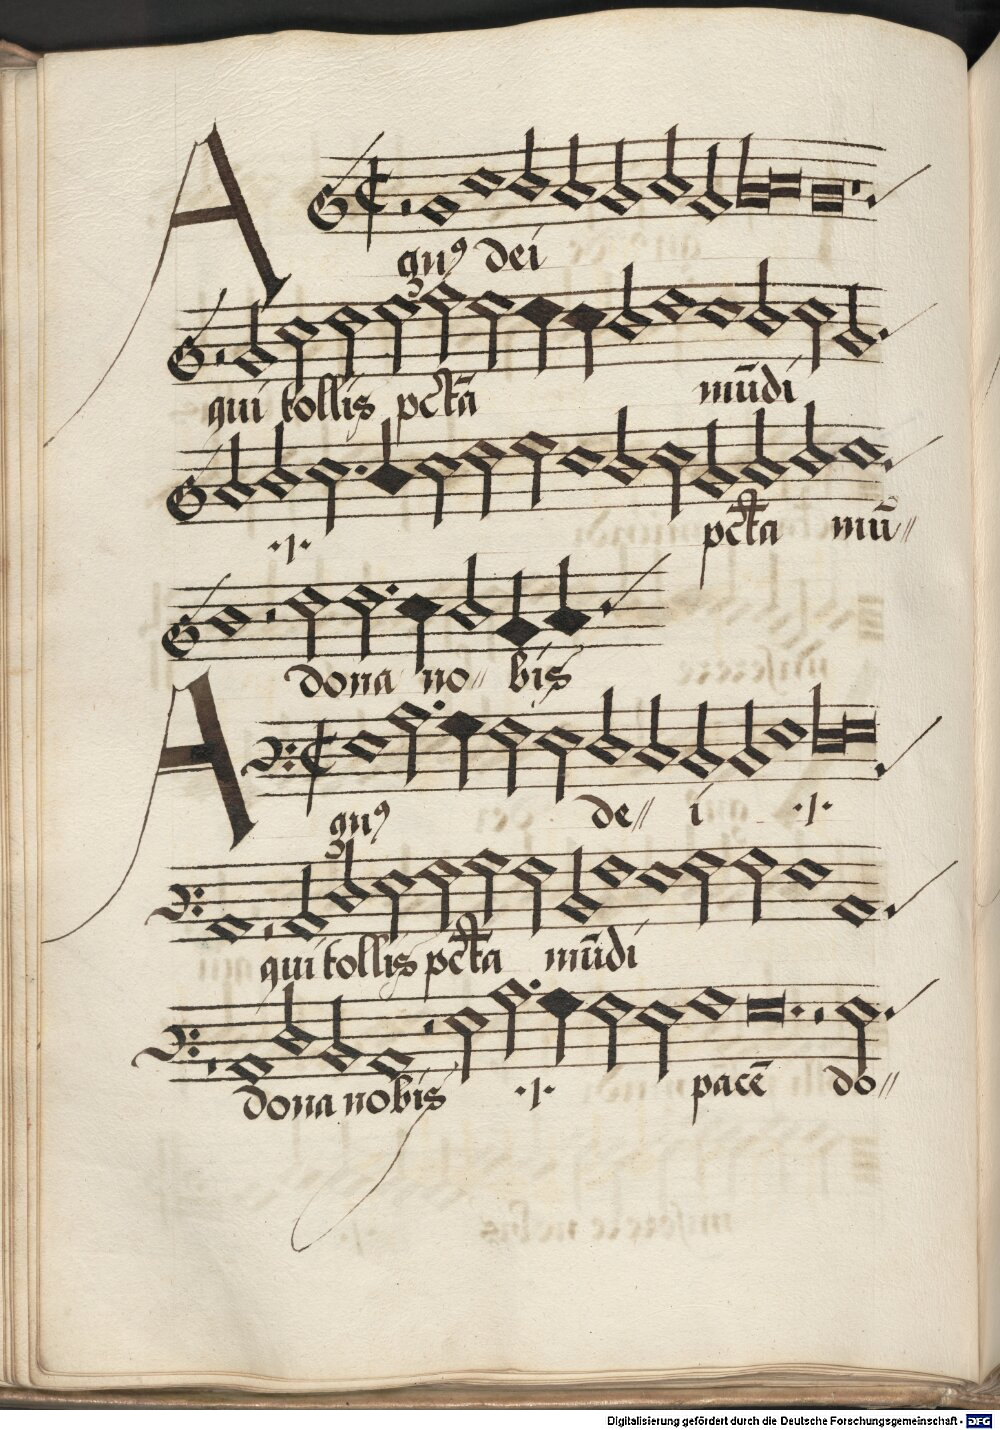 A
gnꝰ dei
qui tollis pctā mūdi
·/· pctā mū
dona no bis
A
gnꝰ de i ·/·
qui tollis pctā mūdi
dona nobis ·/· pacē do
Digitalisierung gefördert durch die Deutsche Forschungsgemeinschaft - DFG